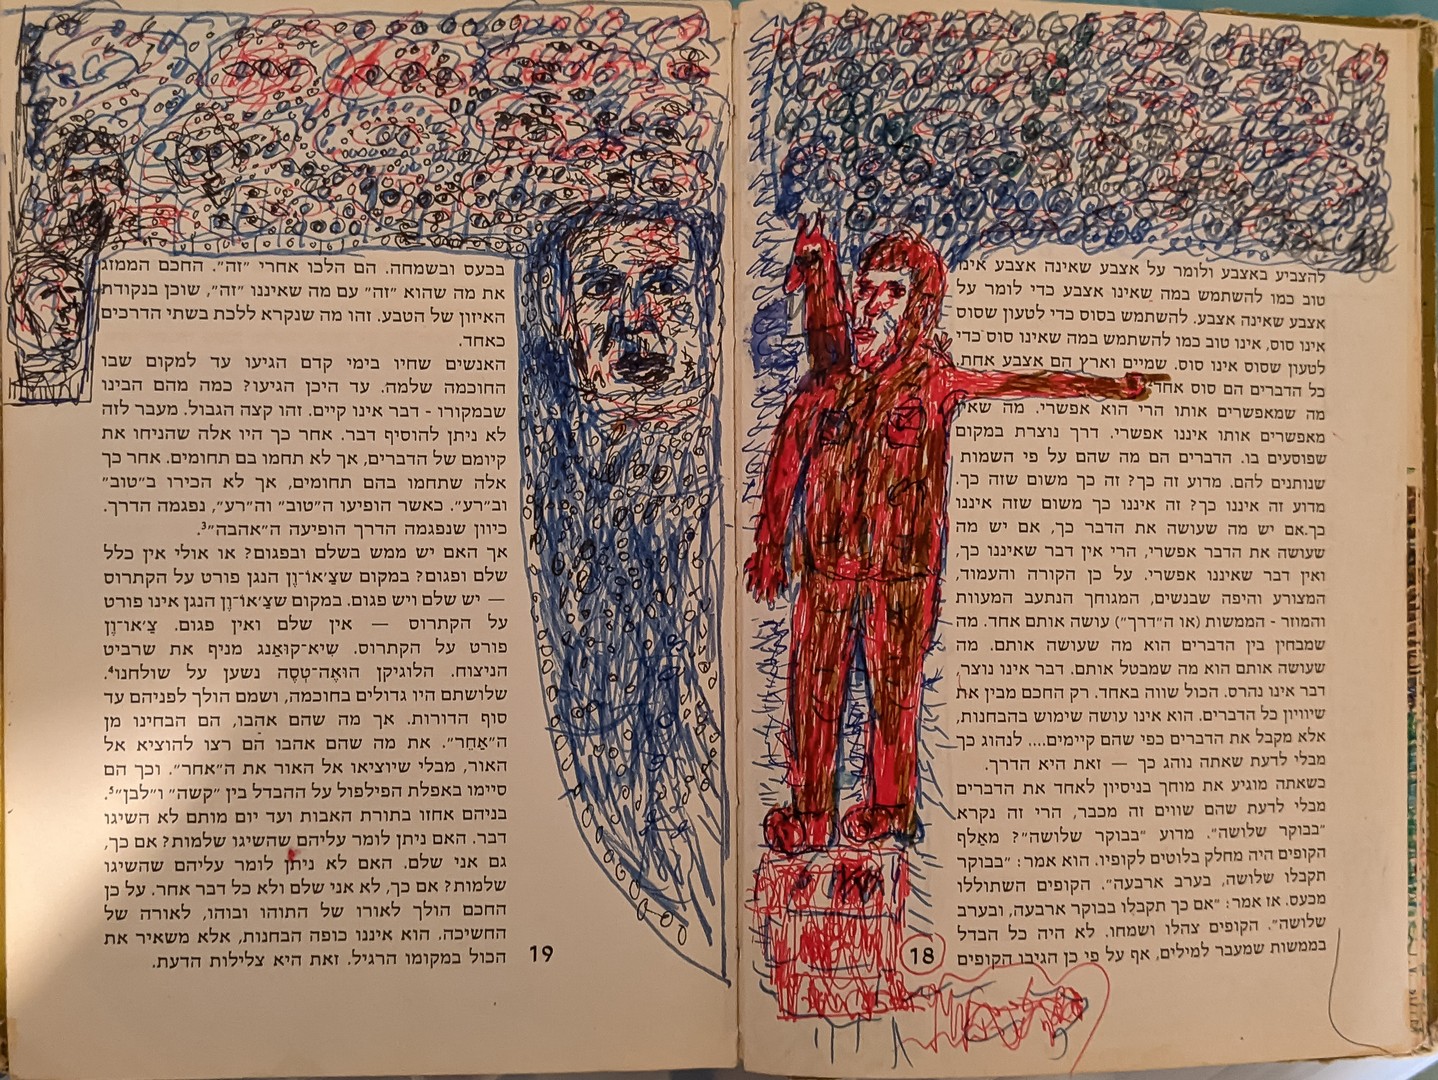 להצביע באצבע ולומר על אצבע שאינה אצבע אינו
טוב כמו להשתמש במה שאינו אצבע כדי לומר על
אצבע שאינה אצבע. להשתמש בסוס כדי לטעון שסוס
אינו סוס, אינו טוב כמו להשתמש במה שאינו סוס כדי
לטעון שסוס אינו סוס. שמיים וארץ הם אצבע אחת.
כל הדברים הם סוס אחד.
מה שמאפשרים אותו הרי הוא אפשרי. מה שאין
מאפשרים אותו איננו אפשרי. דרך נוצרת במקום
שפוסעים בו. הדברים הם מה שהם על פי השמות
שנותנים להם. מדוע זה כך? זה כך משום שזה כך.
מדוע זה איננו כך? זה איננו כך משום שזה איננו
כך. אם יש מה שעושה את הדבר כך, אם יש מה
שעושה את הדבר אפשרי, הרי אין דבר שאיננו כך,
ואין דבר שאיננו אפשרי. על כן הקורה והעמוד,
המצורע והיפה שבנשים, המגוחך הנתעב המעוות
והמוזר - הממשות (או ה״דרך״) עושה אותם אחד. מה
שמבחין בין הדברים הוא מה שעושה אותם. מה
שעושה אותם הוא מה שמבטל אותם. דבר אינו נוצר,
דבר אינו נהרס. הכול שווה באחד. רק החכם מבין את
שיוויון כל הדברים. הוא אינו עושה שימוש בהבחנות,
אלא מקבל את הדברים כפי שהם קיימים.... לנהוג כך
מבלי לדעת שאתה נוהג כך — זאת היא הדרך.
כשאתה מוגיע את מוחך בניסיון לאחד את הדברים
מבלי לדעת שהם שווים זה מכבר, הרי זה נקרא
״בבוקר שלושה״. מדוע ״בבוקר שלושה״? מאלף
הקופים היה מחלק בלוטים לקופיו. הוא אמר: ״בבוקר
תקבלו שלושה, בערב ארבעה״. הקופים השתוללו
מכעס. אז אמר: ״אם כך תקבלו בבוקר ארבעה, ובערב
שלושה״. הקופים צהלו ושמחו. לא היה כל הבדל
בממשות שמעבר למילים, אף על פי כן הגיבו הקופים
18
בכעס ובשמחה. הם הלכו אחרי ״זה״. החכם הממזג
את מה שהוא ״זה״ עם מה שאיננו ״זה״, שוכן בנקודת
האיזון של הטבע. זהו מה שנקרא ללכת בשתי הדרכים
כאחד.
האנשים שחיו בימי קדם הגיעו עד למקום שבו
החוכמה שלמה. עד היכן הגיעו? כמה מהם הבינו
שבמקורו - דבר אינו קיים. זהו קצה הגבול. מעבר לזה
לא ניתן להוסיף דבר. אחר כך היו אלה שהניחו את
קיומם של הדברים, אך לא תחמו בם תחומים. אחר כך
אלה שתחמו בהם תחומים, אך לא הכירו ב״טוב״
וב״רע״. כאשר הופיעו ה״טוב״ וה״רע״, נפגמה הדרך.
כיוון שנפגמה הדרך הופיעה ה״אהבה״³
אך האם יש ממש בשלם ובפגום? או אולי אין כלל
שלם ופגום? במקום שצָ׳אוֹ־וֶן הנגן פורט על הקתרוס
— יש שלם ויש פגום. במקום שצָ׳אוֹ־וֶן הנגן אינו פורט
על הקתרוס — אין שלם ואין פגום. צָ׳אוֹ־וֶן
פורט על הקתרוס. שִׁיא־קוּאַנג מניף את שרביט
הניצוח. הלוגיקן הוּאֶה־טְסֶה נשען על שולחנו⁴.
שלושתם היו גדולים בחוכמה, ושמם הולך לפניהם עד
סוף הדורות. אך מה שהם אהבו, הם הבחינו מן
ה״אַחֵר״. את מה שהם אהבו הם רצו להוציא אל
האור, מבלי שיוציאו אל האור את ה״אחר״. וכך הם
סיימו באפלת הפילפול על ההבדל בין ״קשה״ ו״לבן״⁵.
בניהם אחזו בתורת האבות ועד יום מותם לא השיגו
דבר. האם ניתן לומר עליהם שהשיגו שלמות? אם כך,
גם אני שלם. האם לא ניתן לומר עליהם שהשיגו
שלמות? אם כך, לא אני שלם ולא כל דבר אחר. על כן
החכם הולך לאורו של התוהו ובוהו, לאורה של
החשיכה. הוא איננו כופה הבחנות, אלא משאיר את
הכול במקומו הרגיל. זאת היא צלילות הדעת.
19